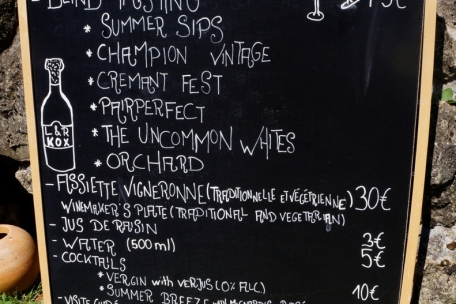 - BLIND TASTING
* SUMMER SIPS
* CHAMPION VINTAGE
* CREMANT FEST
* PAIRPERFECT
* THE UNCOMMON WHITES
* ORCHARD
L&R
KOX
- ASSIETTE VIGNERONNE (TRADITIONNELLE ET VÉGÉTRIENNE) 30€
WINEMAKER'S PLATE (TRADITIONAL AND VEGETARIAN)
- JUS DE RAISIN
- WATER (500ml) 3€
- COCKTAILS 5€
* VERGIN with VERJUS (0% ALC.)
* SUMMER BREEZE 10€